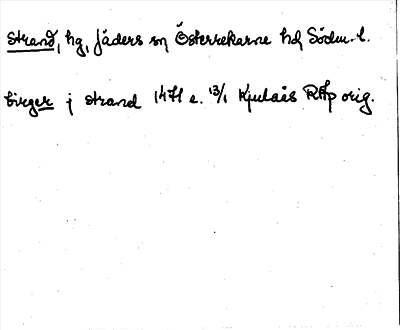 Strand, hg, Jäders sn Österrekarne hd Södm. l.
birger j strand 1471 e. 13/1 Kjulaås RAp orig.